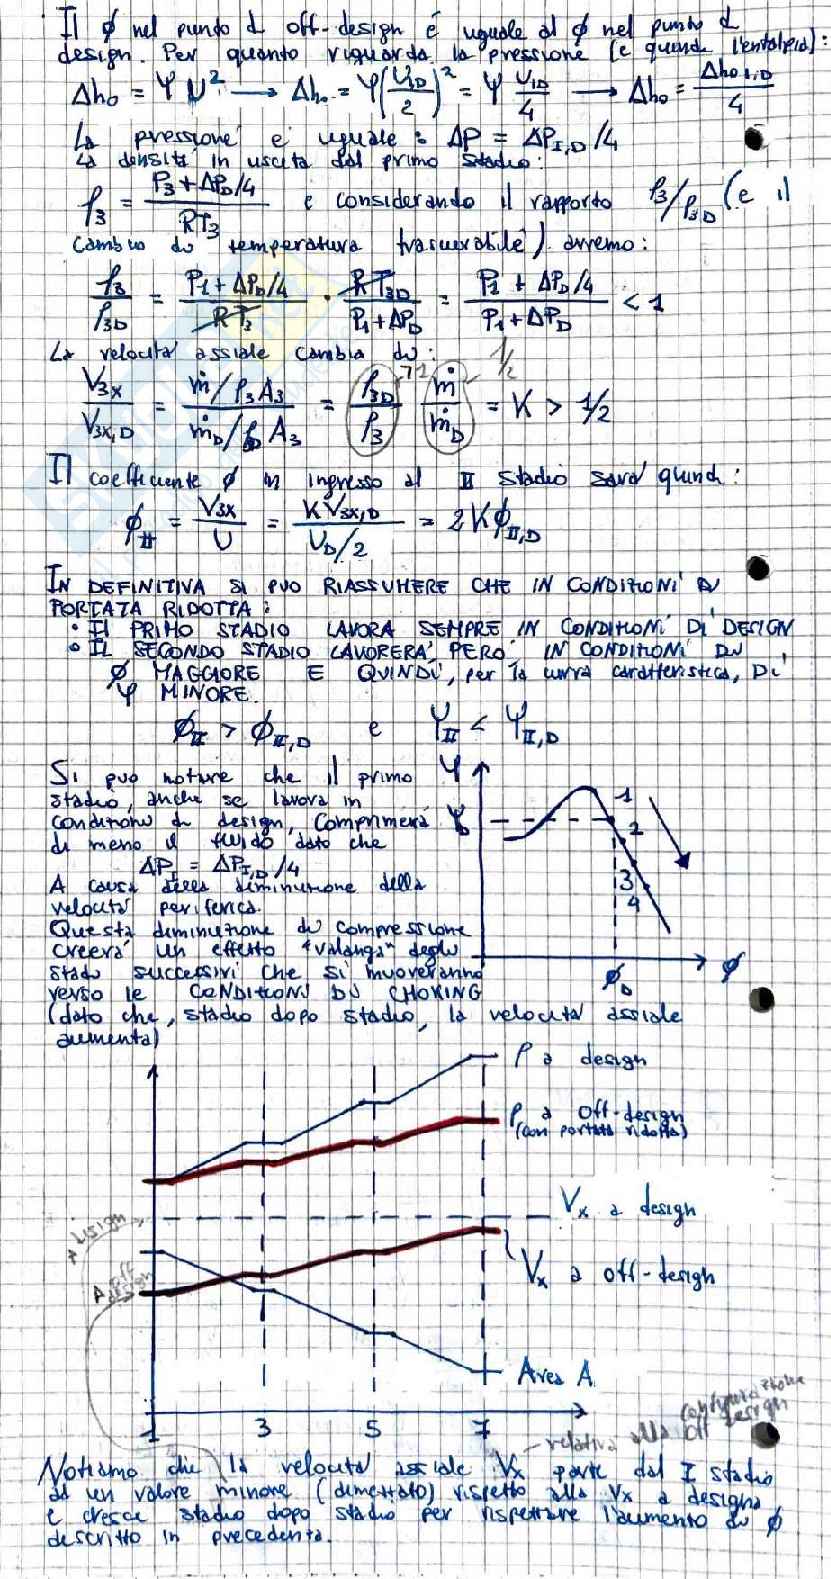 Il φ nel punto d off-design é uguale al φ nel punto d
design. Per quanto riguarda la pressione (e quindi l'entalpia):
Δh₀ = ψ U² → Δh₀ = ψ(U_{ID}/2)² = ψ U_{ID}/4 → Δh₀ = Δh_{0I,D}/4
La pressione e' uguale: ΔP = ΔP_{I,D}/4
La densità in uscita dal primo stadio:
ρ₃ = (P₃ + ΔP_D/4)/(RT₃) e considerando il rapporto ρ₃/ρ_{3D} (e il
cambio di temperatura trascurabile) avremo:
ρ₃/ρ_{3D} = (P₁ + ΔP_D/4)/(RT₃) · RT_{3D}/(P₁ + ΔP_D) = (P₁ + ΔP_D/4)/(P₁ + ΔP_D) < 1
La velocità assiale cambia di:
V_{3X}/V_{3X,D} = (ṁ/ρ₃A₃)/(ṁ_D/ρ_D A₃) = ρ_{3D}/ρ₃ >1 ṁ/ṁ_D 1/2 = K > 1/2
Il coefficiente φ in ingresso al II stadio sarà quindi:
φ_{II} = V_{3X}/U = K V_{3X,D}/(U_D/2) = 2Kφ_{II,D}
IN DEFINITIVA SI PUO RIASSUMERE CHE IN CONDIZIONI DI
PORTATA RIDOTTA:
• Il PRIMO STADIO LAVORA SEMPRE IN CONDIZIONI DI DESIGN
• IL SECONDO STADIO LAVORERA' PERO' IN CONDIZIONI DI
φ MAGGIORE E QUINDI, per la curva caratteristica, DI
ψ MINORE.
φ_{II} > φ_{II,D} e ψ_{II} < ψ_{II,D}
Si può notare che il primo
stadio, anche se lavora in
condizioni di design, comprimerà
di meno il fluido dato che
ΔP_I = ΔP_{I,D}/4
A causa della diminuzione della
velocità periferica.
Questa diminuzione di compressione
creerà un effetto "valanga" degli
stadi successivi che si muoveranno
verso le CONDITIONS DI CHOKING
(dato che, stadio dopo stadio, la velocità assiale
aumenta)
ψ
1
2
3
4
φ_D
φ
ρ a design
ρ a Off-design
(con portata ridotta)
V_x a design
V_x a off-design
Area A
1 3 5 7
relativa alla configurazione
off design
Notiamo che la velocità assiale V_x parte dal I stadio
ad un valore minore (dimezzato) rispetto alla V_x a design
e cresce stadio dopo stadio per rispettare l'aumento di φ
descritto in precedenza.